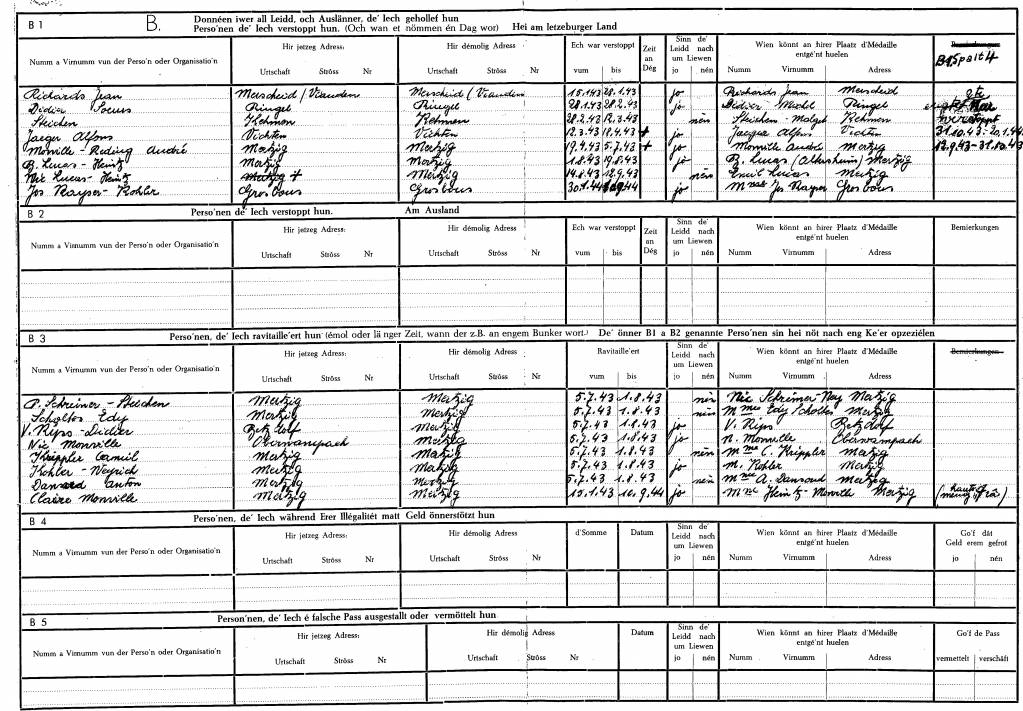 B 1 B. Donnéen iwer all Leidd, och Auslänner, de' Iech gehollef hun
Perso'nen de' Iech verstoppt hun. (Och wan et nömmen én Dag wor) Hei am letzeburger Land
Numm a Virnumm vun der Perso'n oder Organisatio'n Hir jetzeg Adress: Hir démolig Adress Ech war verstoppt Zeit an Dég Sinn de' Leidd nach um Liewen Wien könnt an hirer Plaatz d'Médaille entgé'nt huelen Bemierkungen
Urtschaft Ströss Nr Urtschaft Ströss Nr vum bis jo nén Numm Virnumm Adress B1 Spalt 4
Richards Jean Merscheid / Vianden Merscheid / Vianden 15.1.43 28.1.43 jo Richards Jean Merscheid
Didier Ringel Ringel 28.1.43 28.2.43 jo Didier Michel Ringel
Steichen Kehmen Kehmen 28.2.43 12.3.43 nén Steichen - Kehmen verstoppt
Jaeger Alfons Vichten Vichten 12.3.43 + jo Alfons Vichten 31.10.43 - 20.1.44
Monville - Reding André Mertzig Mertzig 19.4.43 5.7.43 + jo Monville André Mertzig 12.9.43 - 31.10.43
B. Lucas - Heintz Mertzig Mertzig 1.8.43 19.8.43 jo B. Lucas Mertzig
Nic Lucas - Heintz Mertzig + Mertzig 14.8.43 12.9.43 nén Emil Lucas Mertzig
Jos Kayser - Kohler Grosbous Grosbous jo Jos Kayser Grosbous
B 2 Perso'nen de' Iech verstoppt hun. Am Ausland
Numm a Virnumm vun der Perso'n oder Organisatio'n Hir jetzeg Adress: Hir démolig Adress Ech war verstoppt Zeit an Dég Sinn de' Leidd nach um Liewen Wien könnt an hirer Plaatz d'Médaille entgé'nt huelen Bemierkungen
Urtschaft Ströss Nr Urtschaft Ströss Nr vum bis jo nén Numm Virnumm Adress
B 3 Perso'nen, de' Iech ravitaille'ert hun (émol oder länger Zeit, wann der z.B. an engem Bunker wort.) De' önner B1 a B2 genannte Perso'nen sin hei nöt nach eng Ke'er opzeziélen
Numm a Virnumm vun der Perso'n oder Organisatio'n Hir jetzeg Adress: Hir démolig Adress Ravitaille'ert Sinn de' Leidd nach um Liewen Wien könnt an hirer Plaatz d'Médaille entgé'nt huelen Bemierkungen
Urtschaft Ströss Nr Urtschaft Ströss Nr vum bis jo nén Numm Virnumm Adress
P. Schreiner - Steichen Mertzig Mertzig 5.7.43 1.8.43 nén Nic Schreiner - Mertzig
Scholtes Edy Mertzig Mertzig 5.7.43 1.8.43 nén Mme Edy Scholtes Mertzig
V. Rips - Didier Betzdorf Mertzig 5.7.43 1.8.43 jo V. Rips Betzdorf
Nic Monville Oberwampach Mertzig 5.7.43 1.8.43 jo N. Monville Oberwampach
Krippler Camill Mertzig Mertzig 5.7.43 1.8.43 nén Mme C. Krippler Mertzig
Kohler - Weyrich Mertzig Mertzig 5.7.43 1.8.43 jo M. Kohler Mertzig
Anton Mertzig Mertzig 5.7.43 1.8.43 nén Mme A. Mertzig
Claire Monville Mertzig Mertzig 15.1.43 10.9.44 jo Mme Heintz - Monville Mertzig
B 4 Perso'nen, de' Iech während Erer Illégalitét matt Geld önnerstötzt hun
Numm a Virnumm vun der Perso'n oder Organisatio'n Hir jetzeg Adress: Hir démolig Adress d'Somme Datum Sinn de' Leidd nach um Liewen Wien könnt an hirer Plaatz d'Médaille entgé'nt huelen Go'f dát Geld erem gefrot
Urtschaft Ströss Nr Urtschaft Ströss Nr jo nén Numm Virnumm Adress jo nén
B 5 Person'nen, de' Iech é falsche Pass ausgestallt oder vermöttelt hun
Numm a Virnumm vun der Perso'n oder Organisatio'n Hir jetzeg Adress: Hir démolig Adress Datum Sinn de' Leidd nach um Liewen Wien könnt an hirer Plaatz d'Médaille entgé'nt huelen Go'f de Pass
Urtschaft Ströss Nr Urtschaft Ströss Nr jo nén Numm Virnumm Adress vermettelt verschäft